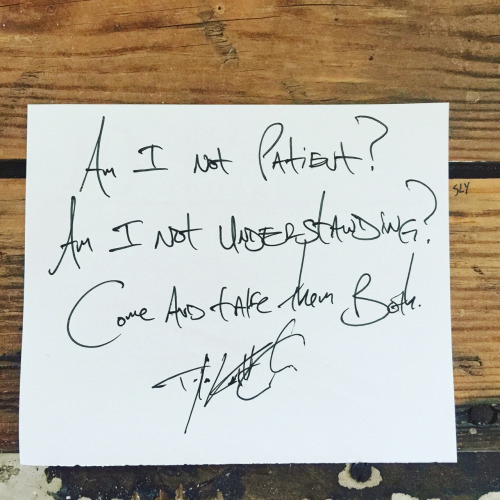 Am I not Patient?
Am I not UNDERSTANDING?
SLY
Come AND take them Both.